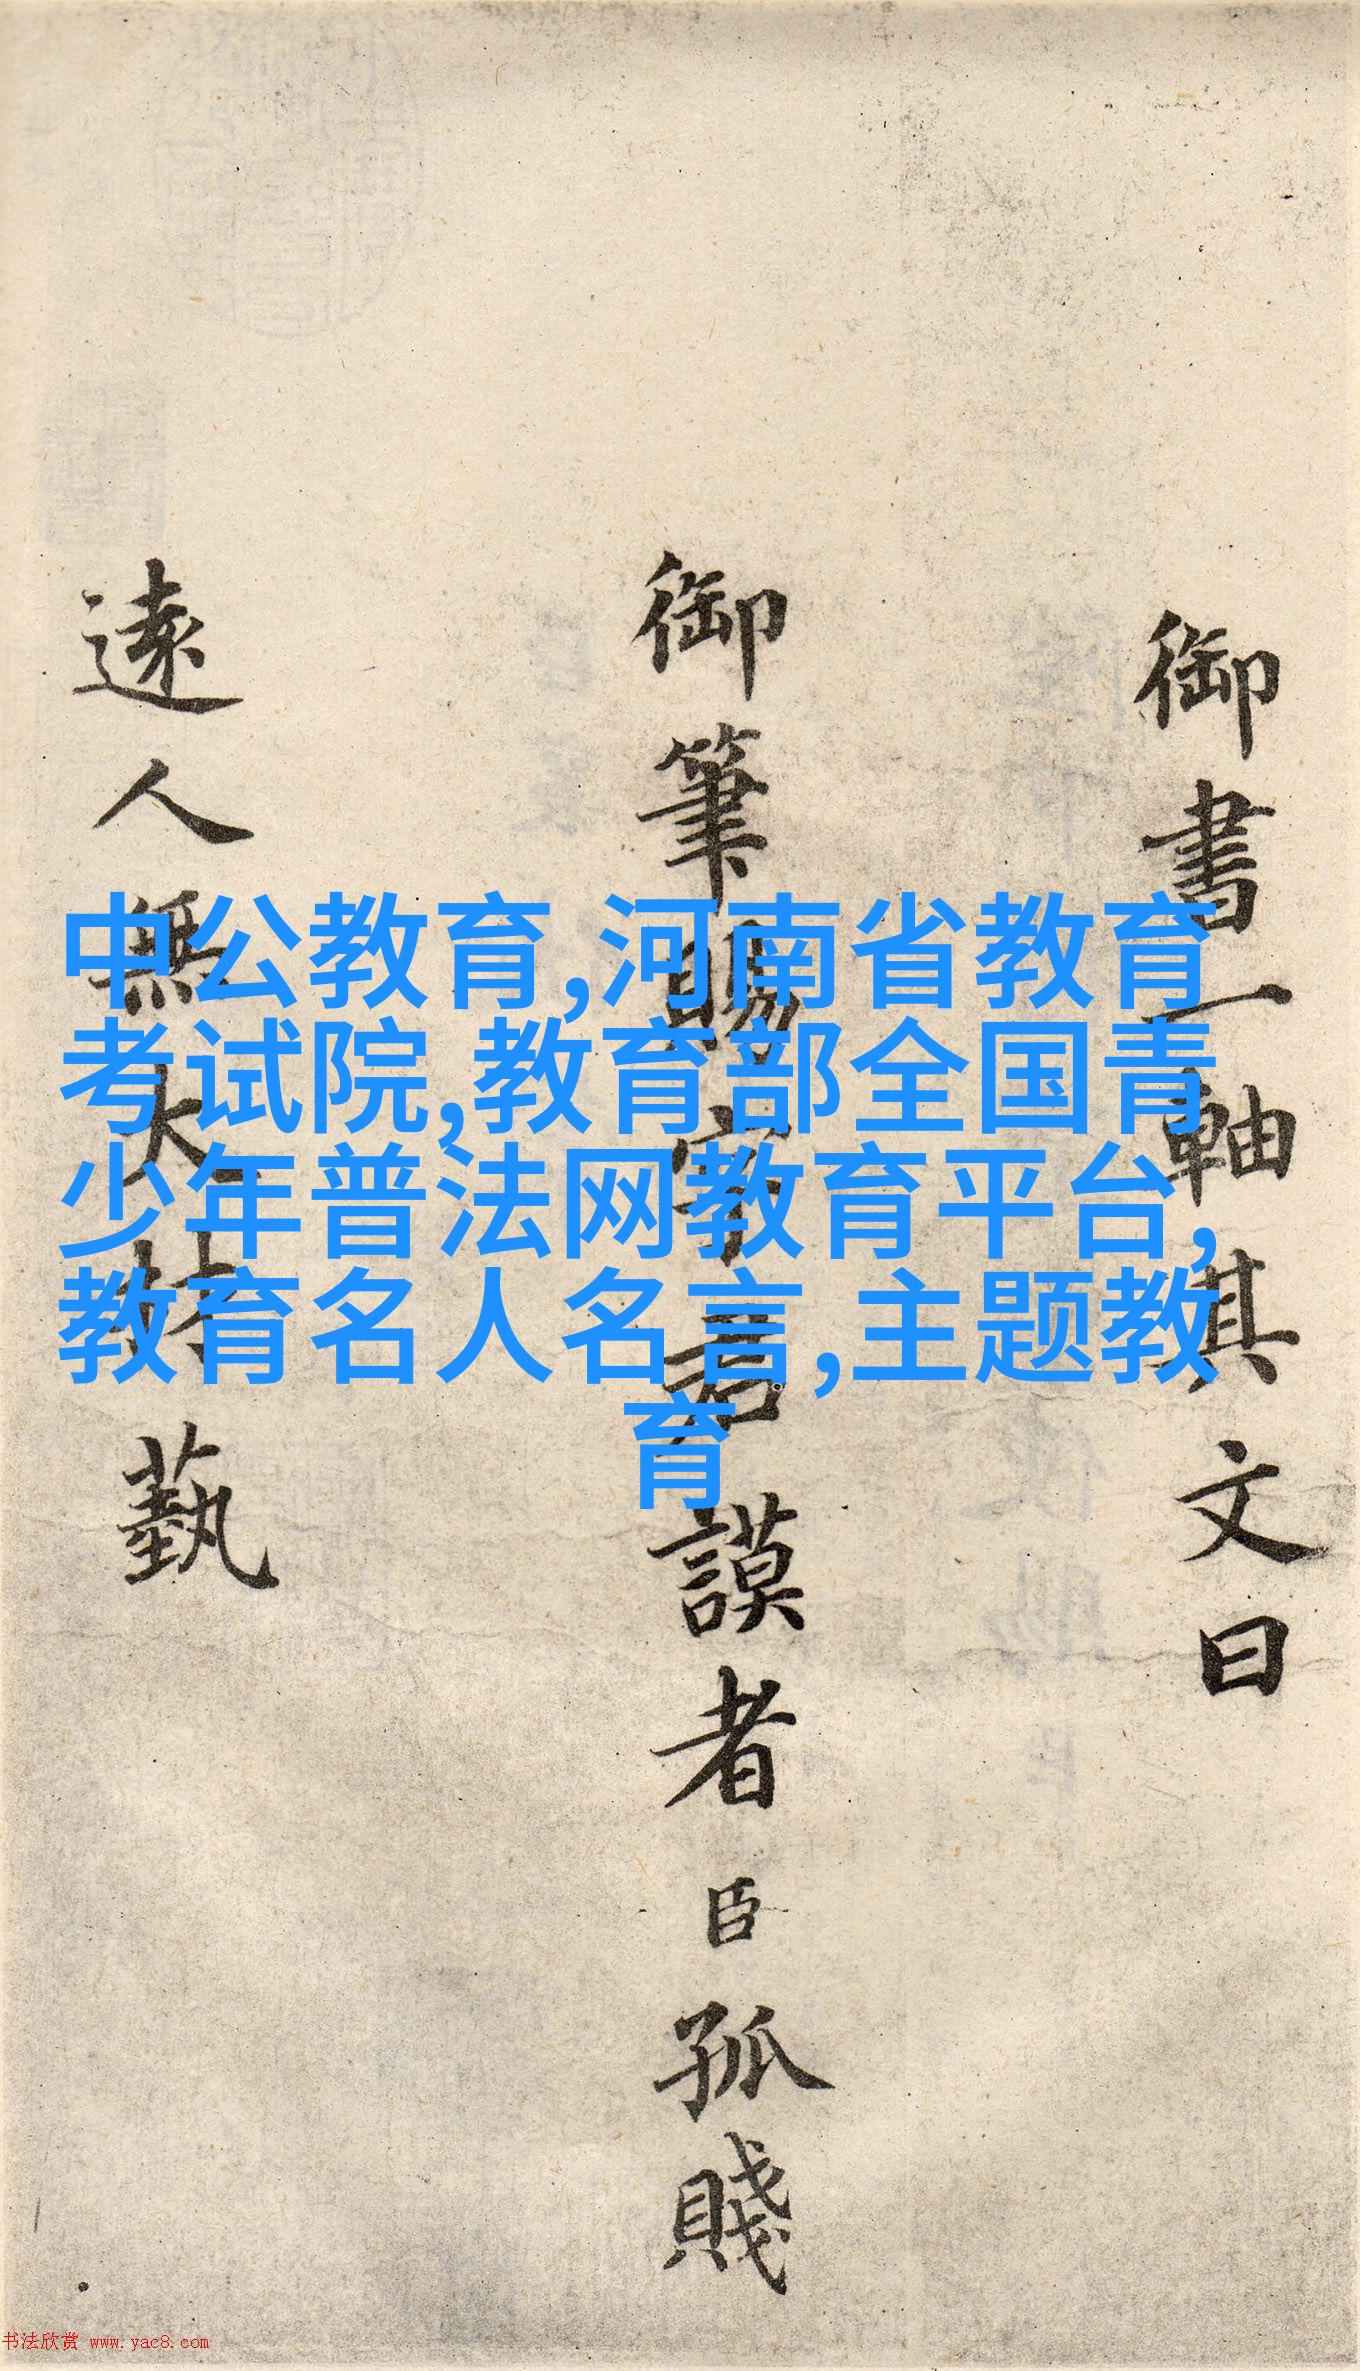 御書一軸其文曰
御筆賜字君謨者臣孤賤
遠人無大材藝
中公教育,河南省教育
考试院,教育部全国青
少年普法网教育平台,
教育名人名言,主题教
育
书法欣赏 www.yac8.com